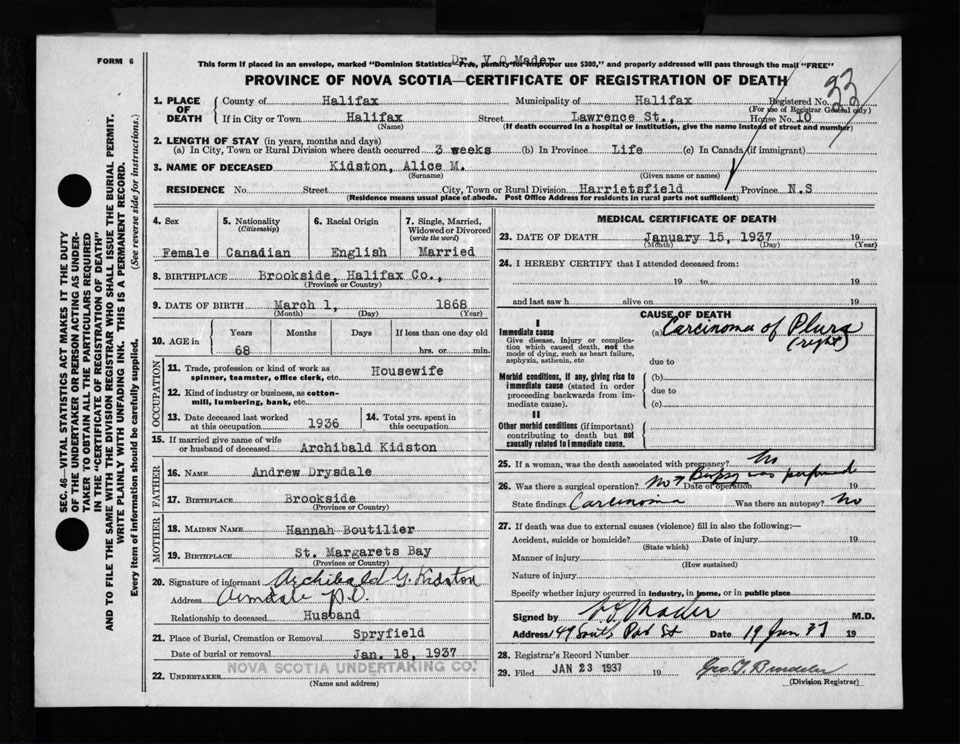 FORM 6
This form if placed in an envelope, marked "Dominion Statistics—Free, penalty for improper use $300," and properly addressed will pass through the mail "FREE"
Dr. V O Mader
PROVINCE OF NOVA SCOTIA—CERTIFICATE OF REGISTRATION OF DEATH
33
1. PLACE OF DEATH
County of Halifax Municipality of Halifax Registered No.
(For use of Registrar General only)
If in City or Town Halifax Street Lawrence St., House No. 10
(Name) (If death occurred in a hospital or institution, give the name instead of street and number)
2. LENGTH OF STAY (in years, months and days)
(a) In City, Town or Rural Division where death occurred 3 weeks (b) In Province Life (c) In Canada (if immigrant)
3. NAME OF DECEASED Kidston, Alice M.
(Surname) (Given name or names)
RESIDENCE No Street City, Town or Rural Division Harrietsfield Province N.S
(Residence means usual place of abode. Post Office Address for residents in rural parts not sufficient)
4. Sex
Female
5. Nationality
(Citizenship)
Canadian
6. Racial Origin
English
7. Single, Married, Widowed or Divorced
(write the word)
Married
8. BIRTHPLACE Brookside, Halifax Co.,
(Province or Country)
9. DATE OF BIRTH March 1, 1868
(Month) (Day) (Year)
10. AGE in
Years Months Days If less than one day old
68 hrs. or min.
OCCUPATION
11. Trade, profession or kind of work as spinner, teamster, office clerk, etc. Housewife
12. Kind of industry or business, as cotton-mill, lumbering, bank, etc.
13. Date deceased last worked at this occupation 1936
14. Total yrs. spent in this occupation
15. If married give name of wife or husband of deceased Archibald Kidston
FATHER
16. NAME Andrew Drysdale
17. BIRTHPLACE Brookside
(Province or Country)
MOTHER
18. MAIDEN NAME Hannah Boutilier
19. BIRTHPLACE St. Margarets Bay
(Province or Country)
20. Signature of informant Archibald G. Kidston
Address Armdale P.O.
Relationship to deceased Husband
21. Place of Burial, Cremation or Removal Spryfield
Date of burial or removal Jan. 18, 1937
NOVA SCOTIA UNDERTAKING CO.
22. UNDERTAKER
(Name and address)
MEDICAL CERTIFICATE OF DEATH
23. DATE OF DEATH January 15, 1937 19
(Month) (Day) (Year)
24. I HEREBY CERTIFY that I attended deceased from:
19 to 19
and last saw h alive on 19
CAUSE OF DEATH
I
Immediate cause
Give disease, injury or complication which caused death, not the mode of dying, such as heart failure, asphyxia, asthenia, etc
(a) Carcinoma of Plura
(right)
due to
Morbid conditions, if any, giving rise to immediate cause (stated in order proceeding backwards from immediate cause).
(b)
due to
(c)
II
Other morbid conditions (if important) contributing to death but not causally related to immediate cause.
25. If a woman, was the death associated with pregnancy? No
26. Was there a surgical operation? No Biopsy was performed
Date of operation 19
State findings Carcinoma Was there an autopsy? No
27. If death was due to external causes (violence) fill in also the following:—
Accident, suicide or homicide? Date of injury 19
(State which)
Manner of injury
(How sustained)
Nature of injury
Specify whether injury occurred in industry, in home, or in public place
Signed by Mader M.D.
Address 149 South Park St Date 19 Jan 37 19
28. Registrar's Record Number
29. Filed JAN 23 1937 19
(Division Registrar)
SEC. 46—VITAL STATISTICS ACT MAKES IT THE DUTY
OF THE UNDERTAKER OR PERSON ACTING AS UNDER-
TAKER TO OBTAIN ALL THE PARTICULARS REQUIRED
IN THE "CERTIFICATE OF REGISTRATION OF DEATH"
AND TO FILE THE SAME WITH THE DIVISION REGISTRAR WHO SHALL ISSUE THE BURIAL PERMIT.
WRITE PLAINLY WITH UNFADING INK. THIS IS A PERMANENT RECORD.
Every item of information should be carefully supplied. (See reverse side for instructions.)